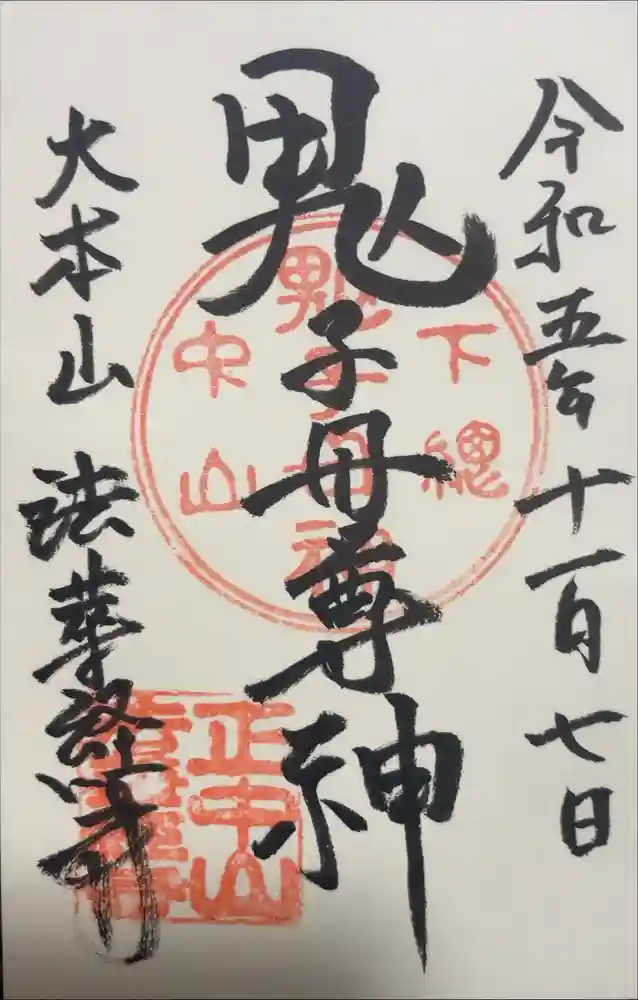 令和五年十一月七日
鬼子母尊神
大本山 法華経寺
下總
鬼子母神
中山
正中山